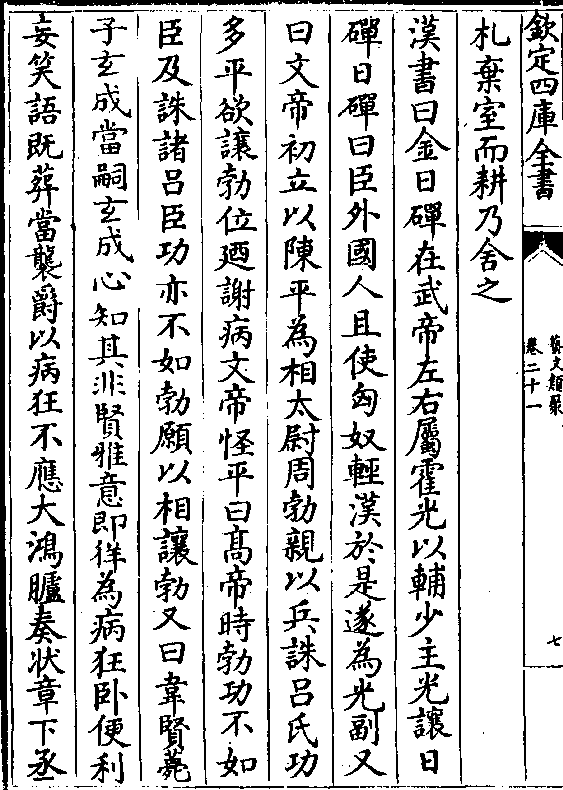 欽定四庫全書
藝文類聚
卷二十一
七
札棄室而耕乃舍之
漢書曰金日磾在武帝左右屬霍光以輔少主光讓日
磾日磾曰臣外國人且使匈奴輕漢於是遂為光副又
曰文帝初立以陳平為相太尉周勃親以兵誅呂氏功
多平欲讓勃位廼謝病文帝怪平曰髙帝時勃功不如
臣及誅諸呂臣功亦不如勃願以相讓勃又曰韋賢薨
子玄成當嗣玄成心知其非賢雅意即徉為病狂卧便利
妄笑語既葬當襲爵以病狂不應大鴻臚奏狀章下丞